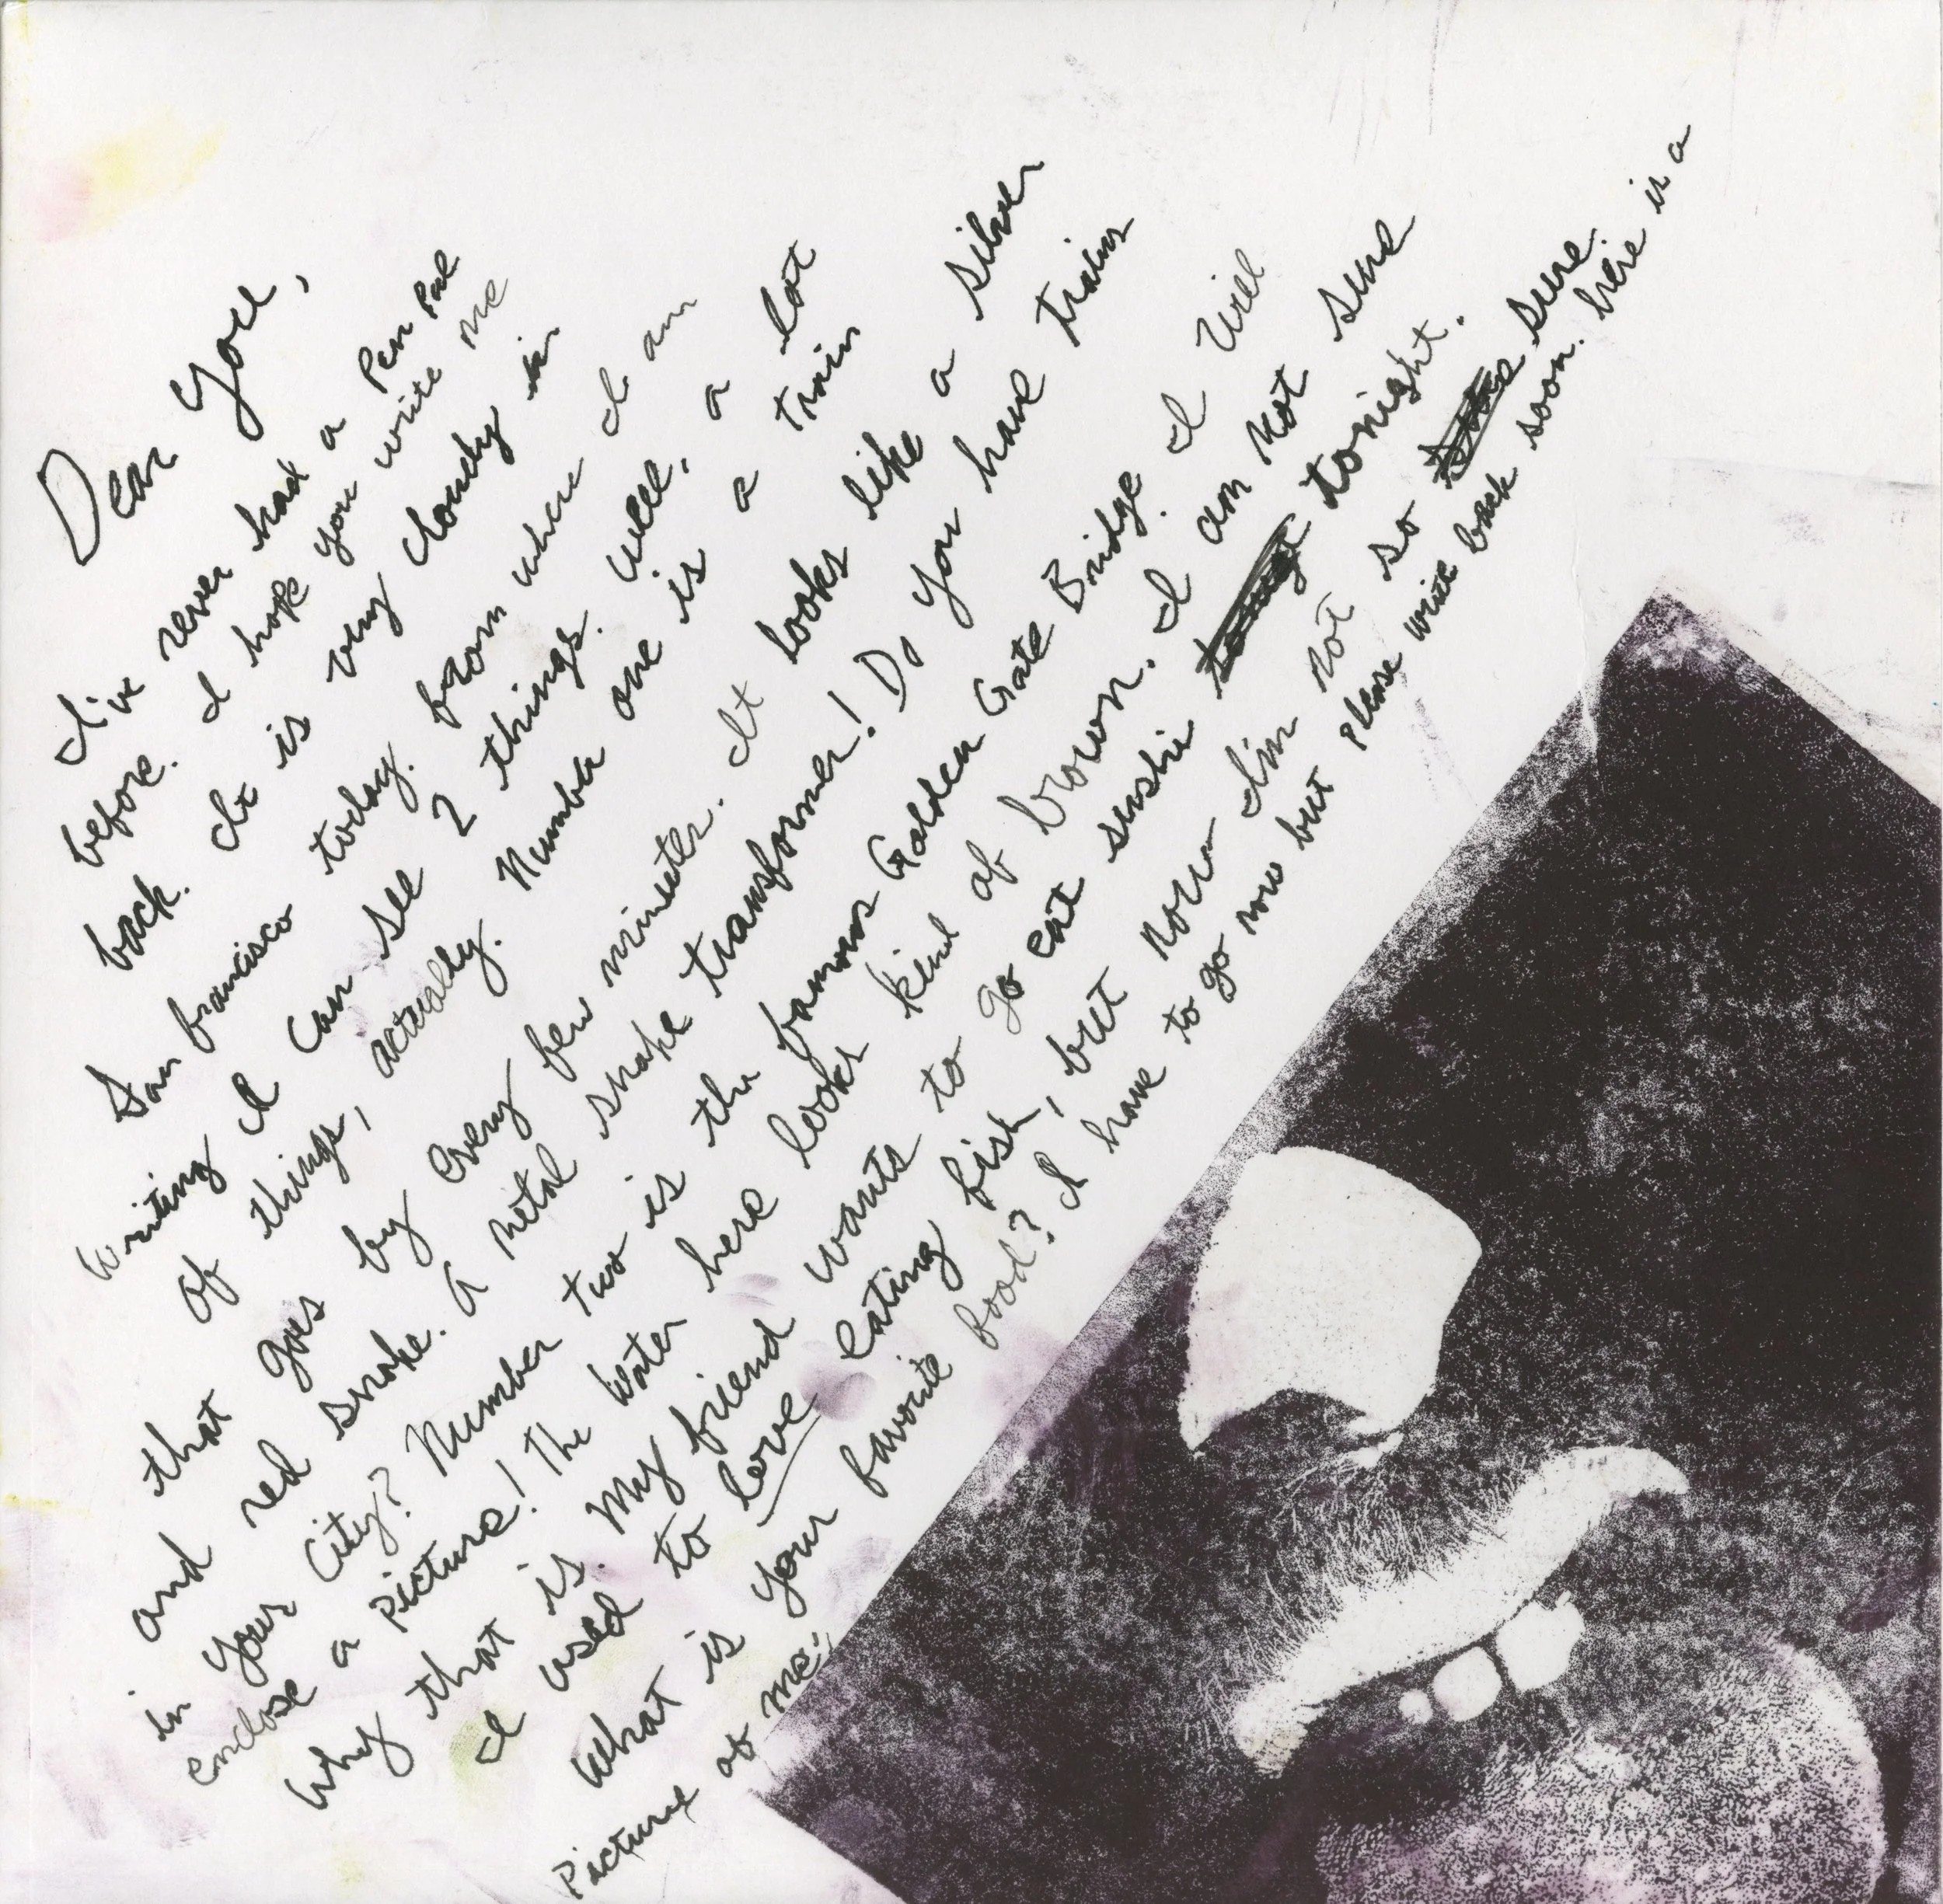 Dear You,
I've never had a Pen Pal
before. I hope you write me
back. It is very cloudy in
San Francisco today. From where I am
writing I can see 2 things. Well, a lot
of things, actually. Number one is a train
that goes by every few minutes. It looks like a silver
and red snake. A metal snake transformer! Do you have trains
in your City? Number two is the famous Golden Gate Bridge. I will
enclose a picture! The water here looks kind of brown. I am not sure
why that is. My friend wants to go eat sushi tonight.
I used to love eating fish, but now I'm not so sure.
What is your favorite food? I have to go now but please write back soon. here is a
Picture of me: